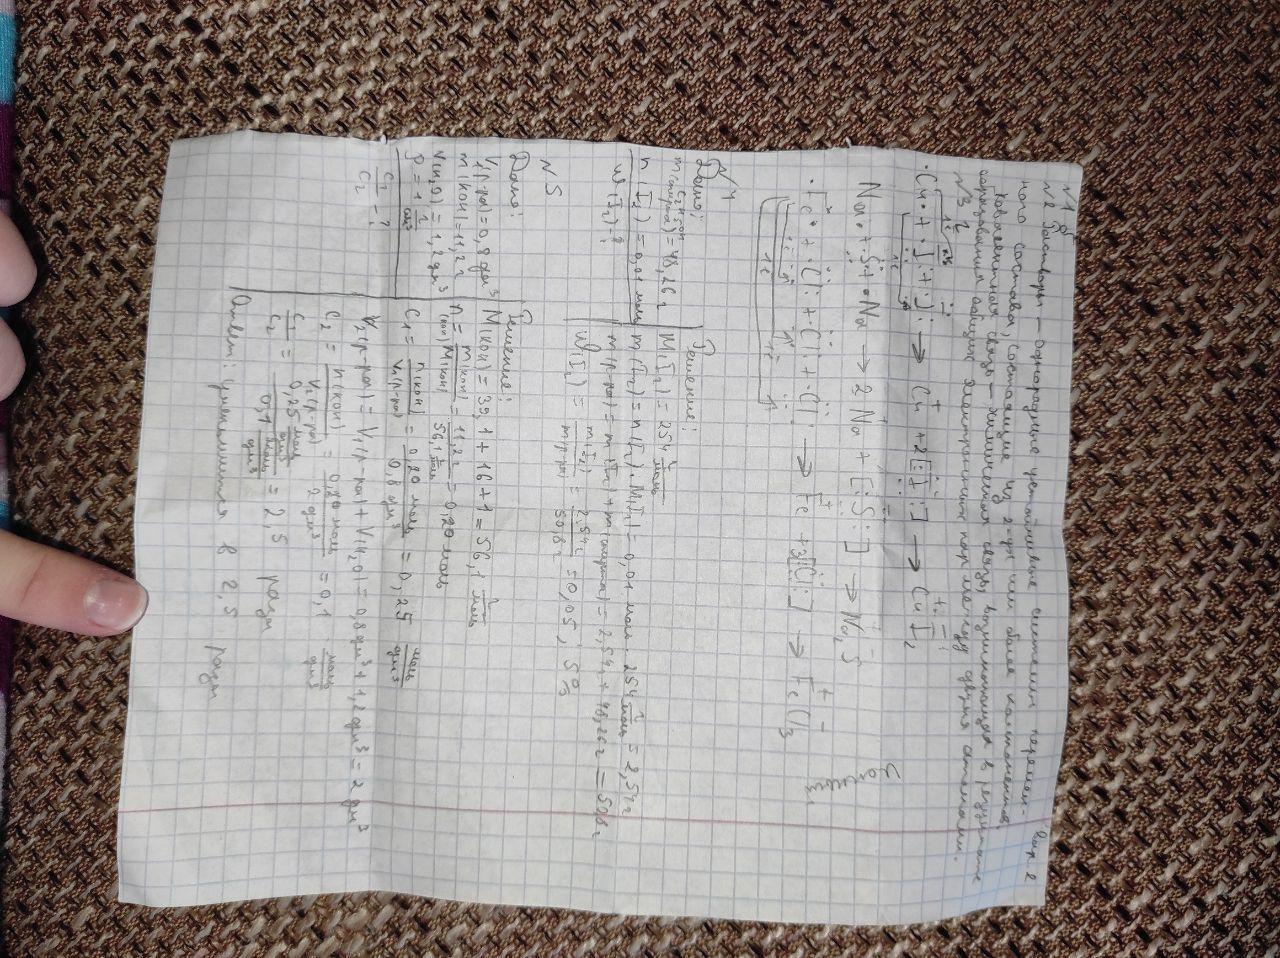 вар. 2
№1 б
№2 Растворы — однородные устойчивые системы перемен-
ного состава, состоящие из двух или более компонентов.
Ковалентная связь — химическая связь, возникающая в результате
образования общих электронных пар между двумя атомами.
№3
·Cu· + ·I: + ·I: → Cu + 2[:I:] → CuI2
Na· + ·S· + ·Na → 2Na + [:S:] → Na2S
·Fe· + ·Cl: + ·Cl: + ·Cl: → Fe + 3[:Cl:] → FeCl3
№4
Дано:
C2H5OH
m(спирта) = 48,26 г
n(I2) = 0,01 моль
w(I2) - ?
Решение:
M(I2) = 254 г/моль
m(I2) = n(I2) · M(I2) = 0,01 моль · 254 г/моль = 2,54 г
m(р-ра) = m(I2) + m(спирта) = 2,54 г + 48,26 г = 50,8 г
w(I2) = m(I2)/m(р-ра) = 2,54 г/50,8 г = 0,05; 5%
№5
Дано:
V1(р-ра) = 0,8 дм³
m(KOH) = 11,2 г
V(H2O) = 1,2 дм³
ρ = 1 г/см³
C1/C2 - ?
Решение:
M(KOH) = 39,1 + 16 + 1 = 56,1 г/моль
n(KOH) = m(KOH)/M(KOH) = 11,2 г/56,1 г/моль = 0,20 моль
C1 = n(KOH)/V1(р-ра) = 0,20 моль/0,8 дм³ = 0,25 моль/дм³
V2(р-ра) = V1(р-ра) + V(H2O) = 0,8 дм³ + 1,2 дм³ = 2 дм³
C2 = n(KOH)/V2(р-ра) = 0,20 моль/2 дм³ = 0,1 моль/дм³
C1/C2 = 0,25 моль/дм³/0,1 моль/дм³ = 2,5 разы
Ответ: уменьшится в 2,5 разы